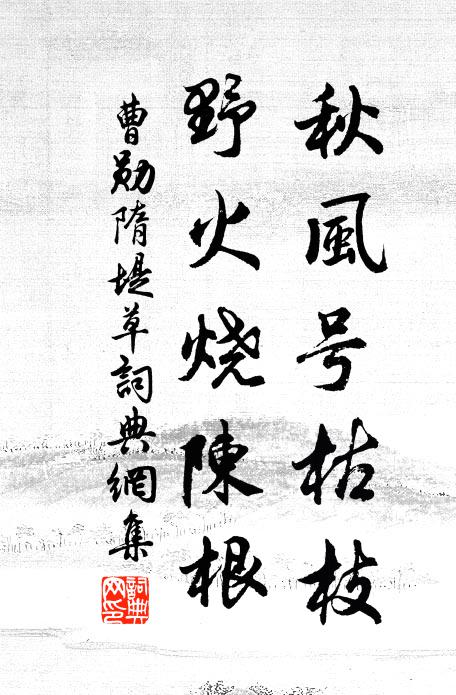 秋風号枯枝
野火烧陳根
曹勛隋堤草詞典網集
詞典网印